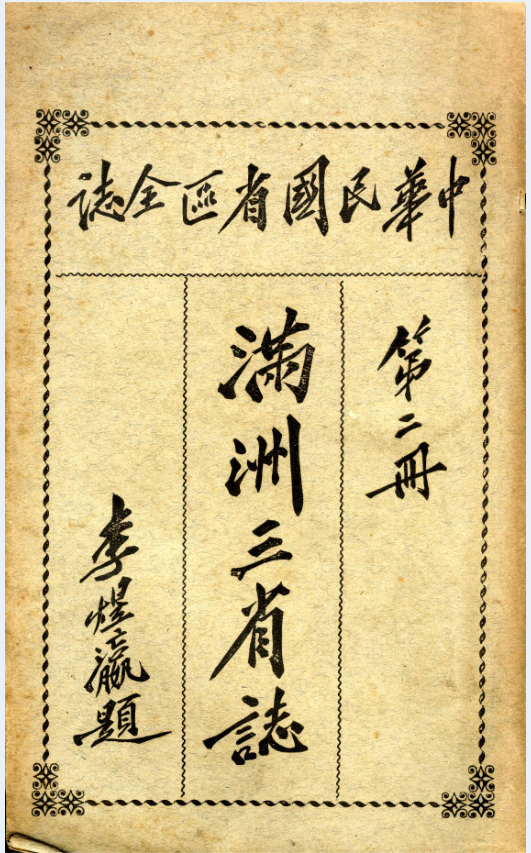 中華民國省區全誌
第二冊
滿洲三省誌
李煜瀛題